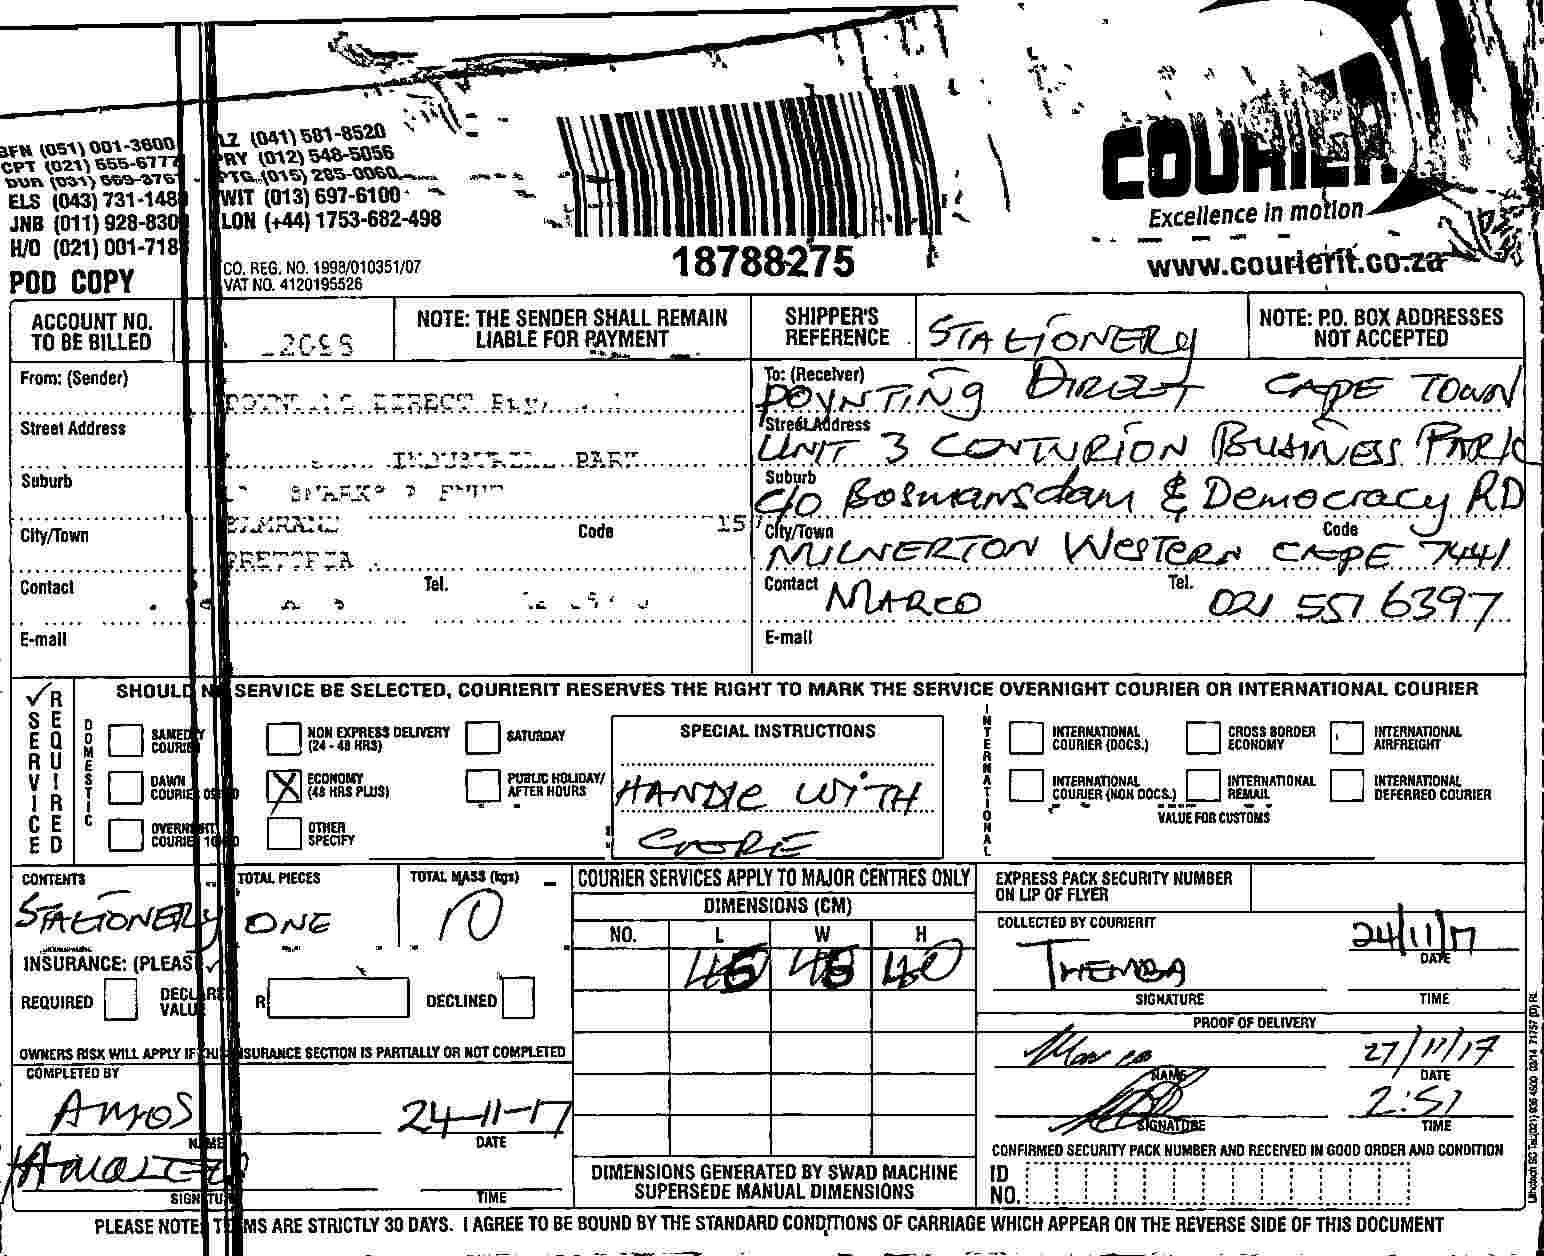 BFN (051) 001-3600
CPT (021) 555-6777
ELS (043) 731-148
JNB (011) 928-830
H/O (021) 001-718
POD COPY
LZ (041) 581-8520
PRY (012) 548-5056
PTG (015) 285-0060
WIT (013) 697-6100
LON (+44) 1753-682-498
CO. REG. NO. 1998/010351/07
VAT NO. 4120195526
18788275
COURIER
Excellence in motion
www.courierit.co.za
ACCOUNT NO. TO BE BILLED
NOTE: THE SENDER SHALL REMAIN LIABLE FOR PAYMENT
SHIPPER'S REFERENCE
STATIONERY
NOTE: P.O. BOX ADDRESSES NOT ACCEPTED
From: (Sender)
DIRECT
Street Address
INDUSTRIAL PARK
Suburb
City/Town
Code
PRETORIA
Contact
Tel.
E-mail
To: (Receiver)
POYNTING DIRECT CAPE TOWN
Street Address
UNIT 3 CENTURION BUSINESS PARK
Suburb
C/O Bosmansdam & Democracy RD
City/Town
Code
MILNERTON WESTERN CAPE 7441
Contact MARCO
Tel. 021 551 6397
E-mail
SERVICE REQUIRED
SHOULD NO SERVICE BE SELECTED, COURIERIT RESERVES THE RIGHT TO MARK THE SERVICE OVERNIGHT COURIER OR INTERNATIONAL COURIER
DOMESTIC
SAMEDAY COURIER
DAWN COURIER
OVERNIGHT COURIER
NON EXPRESS DELIVERY (24 - 48 HRS)
ECONOMY (48 HRS PLUS)
OTHER SPECIFY
SATURDAY
PUBLIC HOLIDAY/ AFTER HOURS
SPECIAL INSTRUCTIONS
HANDLE WITH
CARE
INTERNATIONAL
INTERNATIONAL COURIER (DOCS.)
INTERNATIONAL COURIER (NON DOCS.)
CROSS BORDER ECONOMY
INTERNATIONAL REMAIL
INTERNATIONAL AIRFREIGHT
INTERNATIONAL DEFERRED COURIER
VALUE FOR CUSTOMS
CONTENTS
STATIONERY
TOTAL PIECES
ONE
TOTAL MASS (kgs)
10
INSURANCE: (PLEAS
REQUIRED
DECLARED VALUE
R
DECLINED
OWNERS RISK WILL APPLY IF THIS INSURANCE SECTION IS PARTIALLY OR NOT COMPLETED
COMPLETED BY
AMOS
NAME
24-11-17
DATE
SIGNATURE
TIME
COURIER SERVICES APPLY TO MAJOR CENTRES ONLY
DIMENSIONS (CM)
NO. L W H
45 45 40
DIMENSIONS GENERATED BY SWAD MACHINE SUPERSEDE MANUAL DIMENSIONS
EXPRESS PACK SECURITY NUMBER ON LIP OF FLYER
COLLECTED BY COURIERIT
THEMBA
SIGNATURE
24/11/17
DATE
TIME
PROOF OF DELIVERY
NAME
27/11/17
DATE
SIGNATURE
2:51
TIME
CONFIRMED SECURITY PACK NUMBER AND RECEIVED IN GOOD ORDER AND CONDITION
ID NO.
PLEASE NOTE: TERMS ARE STRICTLY 30 DAYS. I AGREE TO BE BOUND BY THE STANDARD CONDITIONS OF CARRIAGE WHICH APPEAR ON THE REVERSE SIDE OF THIS DOCUMENT